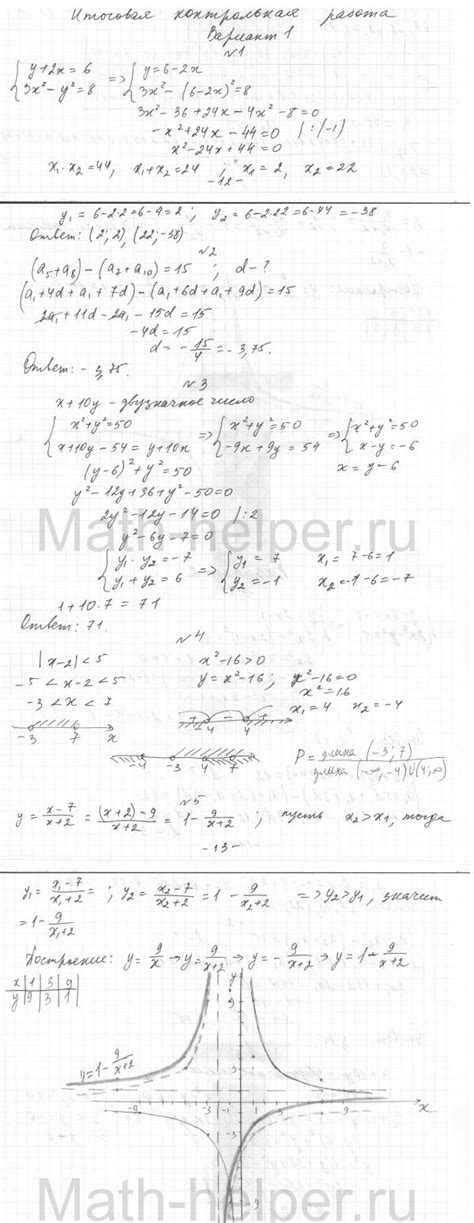 Итоговая контрольная работа
Вариант 1
№1
{ y+2x=6 => { y=6-2x
{ 3x²-y²=8 { 3x²-(6-2x)²=8
3x²-36+24x-4x²-8=0
-x²+24x-44=0 /:(-1)
x²-24x+44=0
x₁·x₂=44, x₁+x₂=24 ; x₁=2, x₂=22
-12-
y₁=6-2·2=6-4=2 ; y₂=6-2·22=6-44=-38
Ответ: (2;2), (22;-38)
№2
(a₅+a₈)-(a₇+a₁₀)=15 ; d-?
(a₁+4d+a₁+7d)-(a₁+6d+a₁+9d)=15
2a₁+11d-2a₁-15d=15
-4d=15
d=-15/4=-3,75.
Ответ: -3,75.
№3
x+10y - двузначное число
{ x²+y²=50 => { x²+y²=50 => { x²+y²=50
{ x+10y-54=y+10x { -9x+9y=54 { x-y=-6
x=y-6
(y-6)²+y²=50
y²-12y+36+y²-50=0
2y²-12y-14=0 /:2
y²-6y-7=0
{ y₁·y₂=-7 => { y₁=7 x₁=7-6=1
{ y₁+y₂=6 { y₂=-1 x₂=-1-6=-7
1+10·7=71
Ответ: 71.
№4
|x-2|<5 x²-16>0
-5<x-2<5 y=x²-16 ; x²-16=0
x²=16
-3<x<7 x₁=4 x₂=-4
-3 7 x -4 4
-4 -3 4 7 P= длина (-3;7) / длина (-∞,-4)∪(4;∞)
№5
y=(x-7)/(x+2)=((x+2)-9)/(x+2)=1-9/(x+2) ; пусть x₂>x₁, тогда
-13-
y₁=(x₁-7)/(x₁+2)= ; y₂=(x₂-7)/(x₂+2)=1-9/(x₂+2) =>y₂>y₁, значит
=1-9/(x₁+2)
Построение: y=9/x → y=9/(x+2) → y=-9/(x+2) → y=1-9/(x+2)
x 1 3 9
y 9 3 1
y
9
y=1-9/(x+2)
-9 -3 -1 1 9 x
-3
-9
Math-helper.ru
Math-helper.ru